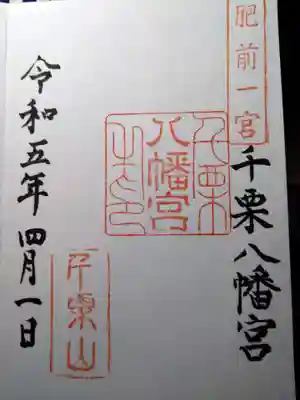 肥前一宮
千栗八幡宮
千栗
八幡宮
千栗山
令和五年 四月一日